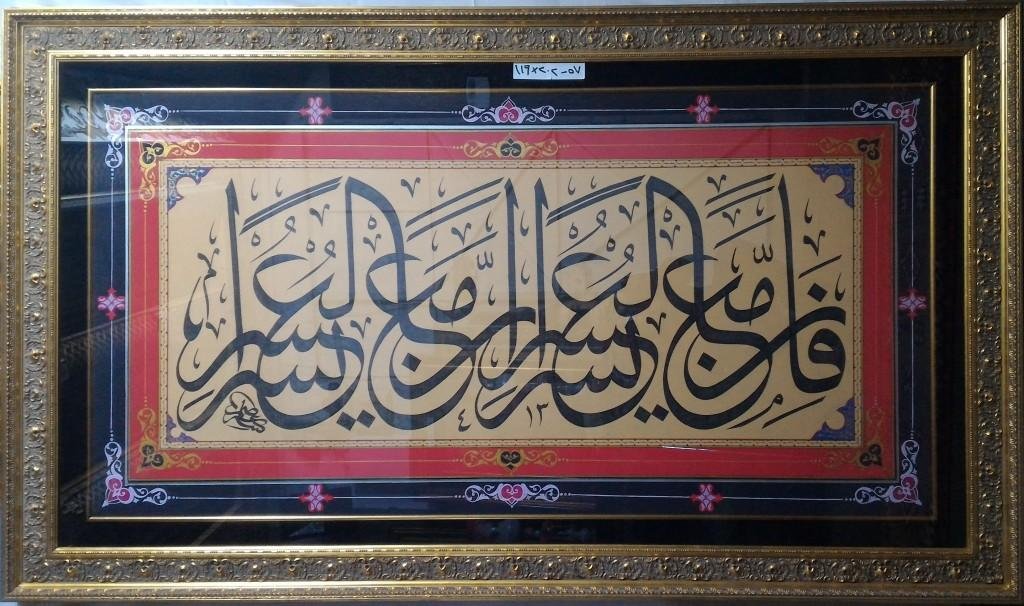 ١١٩×٢٠٢-٥٧
فَإِنَّ مَعَ الْعُسْرِ يُسْرًا إِنَّ مَعَ الْعُسْرِ يُسْرًا